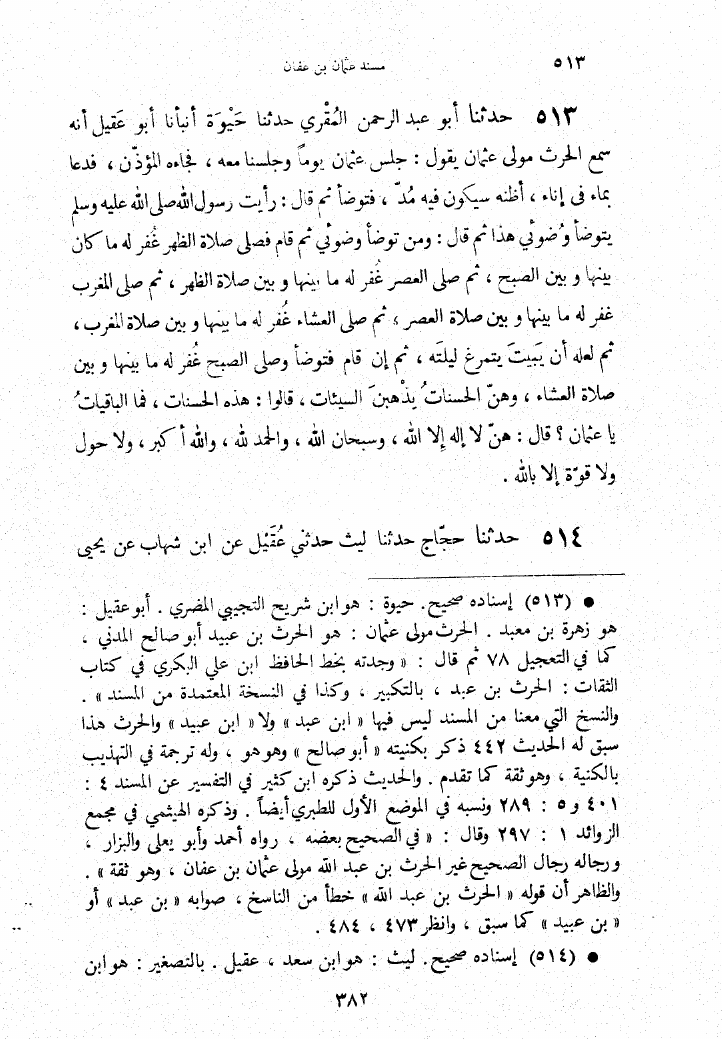 ٥١٣ مسند عثمان بن عفان
٥١٣ حدثنا أبو عبد الرحمن المُقْري حدثنا حَيْوَة أنبأنا أبو عَقيل أنه
سمع الحرث مولى عثمان يقول : جلس عثمان يوماً وجلسنا معه ، فجاءه المؤذّن ، فدعا
بماء فى إناء ، أظنه سيكون فيه مُدّ ، فتوضأ ثم قال : رأيت رسول الله صلى الله عليه وسلم
يتوضأ وُضوئي هذا ثم قال : ومن توضأ وضوئي ثم قام فصلى صلاة الظهر غُفر له ما كان
بينها وبين الصبح ، ثم صلى العصر غُفر له ما بينها وبين صلاة الظهر ، ثم صلى المغرب
غفر له ما بينها وبين صلاة العصر ، ثم صلى العشاء غُفر له ما بينها وبين صلاة المغرب ،
ثم لعله أن يَبيتَ يتمرغ ليلتَه ، ثم إن قام فتوضأ وصلى الصبح غُفر له ما بينها وبين
صلاة العشاء ، وهنّ الحسناتُ يذْهبنَ السيئات ، قالوا : هذه الحسنات ، فما الباقياتُ
يا عثمان ؟ قال : هنّ لا إله إلا الله ، وسبحان الله ، والحمد لله ، والله أكبر ، ولا حول
ولا قوّة إلا بالله .
٥١٤ حدثنا حجّاج حدثنا ليث حدثني عُقَيْل عن ابن شهاب عن يحيى
● (٥١٣) إسناده صحيح . حيوة : هو ابن شريح التجيبي المصري . أبو عقيل :
هو زهرة بن معبد . الحرث مولى عثمان : هو الحرث بن عبيد أبو صالح المدني ،
كما في التعجيل ٧٨ ثم قال : « وجدته بخط الحافظ ابن علي البكري في كتاب
الثقات : الحرث بن عبد ، بالتكبير ، وكذا في النسخة المعتمدة من المسند » .
والنسخ التي معنا من المسند ليس فيها « ابن عبد » ولا « ابن عبيد » والحرث هذا
سبق له الحديث ٤٤٢ ذكر بكنيته « أبو صالح » وهو هو ، وله ترجمة في التهذيب
بالكنية ، وهو ثقة كما تقدم . والحديث ذكره ابن كثير في التفسير عن المسند ٤ :
٤٠١ و ٥ : ٢٨٩ ونسبه في الموضع الأول للطبري أيضاً . وذكره الهيثمي في مجمع
الزوائد ١ : ٢٩٧ وقال : « في الصحيح بعضه ، رواه أحمد وأبو يعلى والبزار ،
ورجاله رجال الصحيح غير الحرث بن عبد الله مولى عثمان بن عفان ، وهو ثقة » .
والظاهر أن قوله « الحرث بن عبد الله » خطأ من الناسخ ، صوابه « بن عبد » أو
« بن عبيد » كما سبق ، وانظر ٤٧٣ ، ٤٨٤ .
● (٥١٤) إسناده صحيح . ليث : هو ابن سعد ، عقيل . بالتصغير : هو ابن
٣٨٢